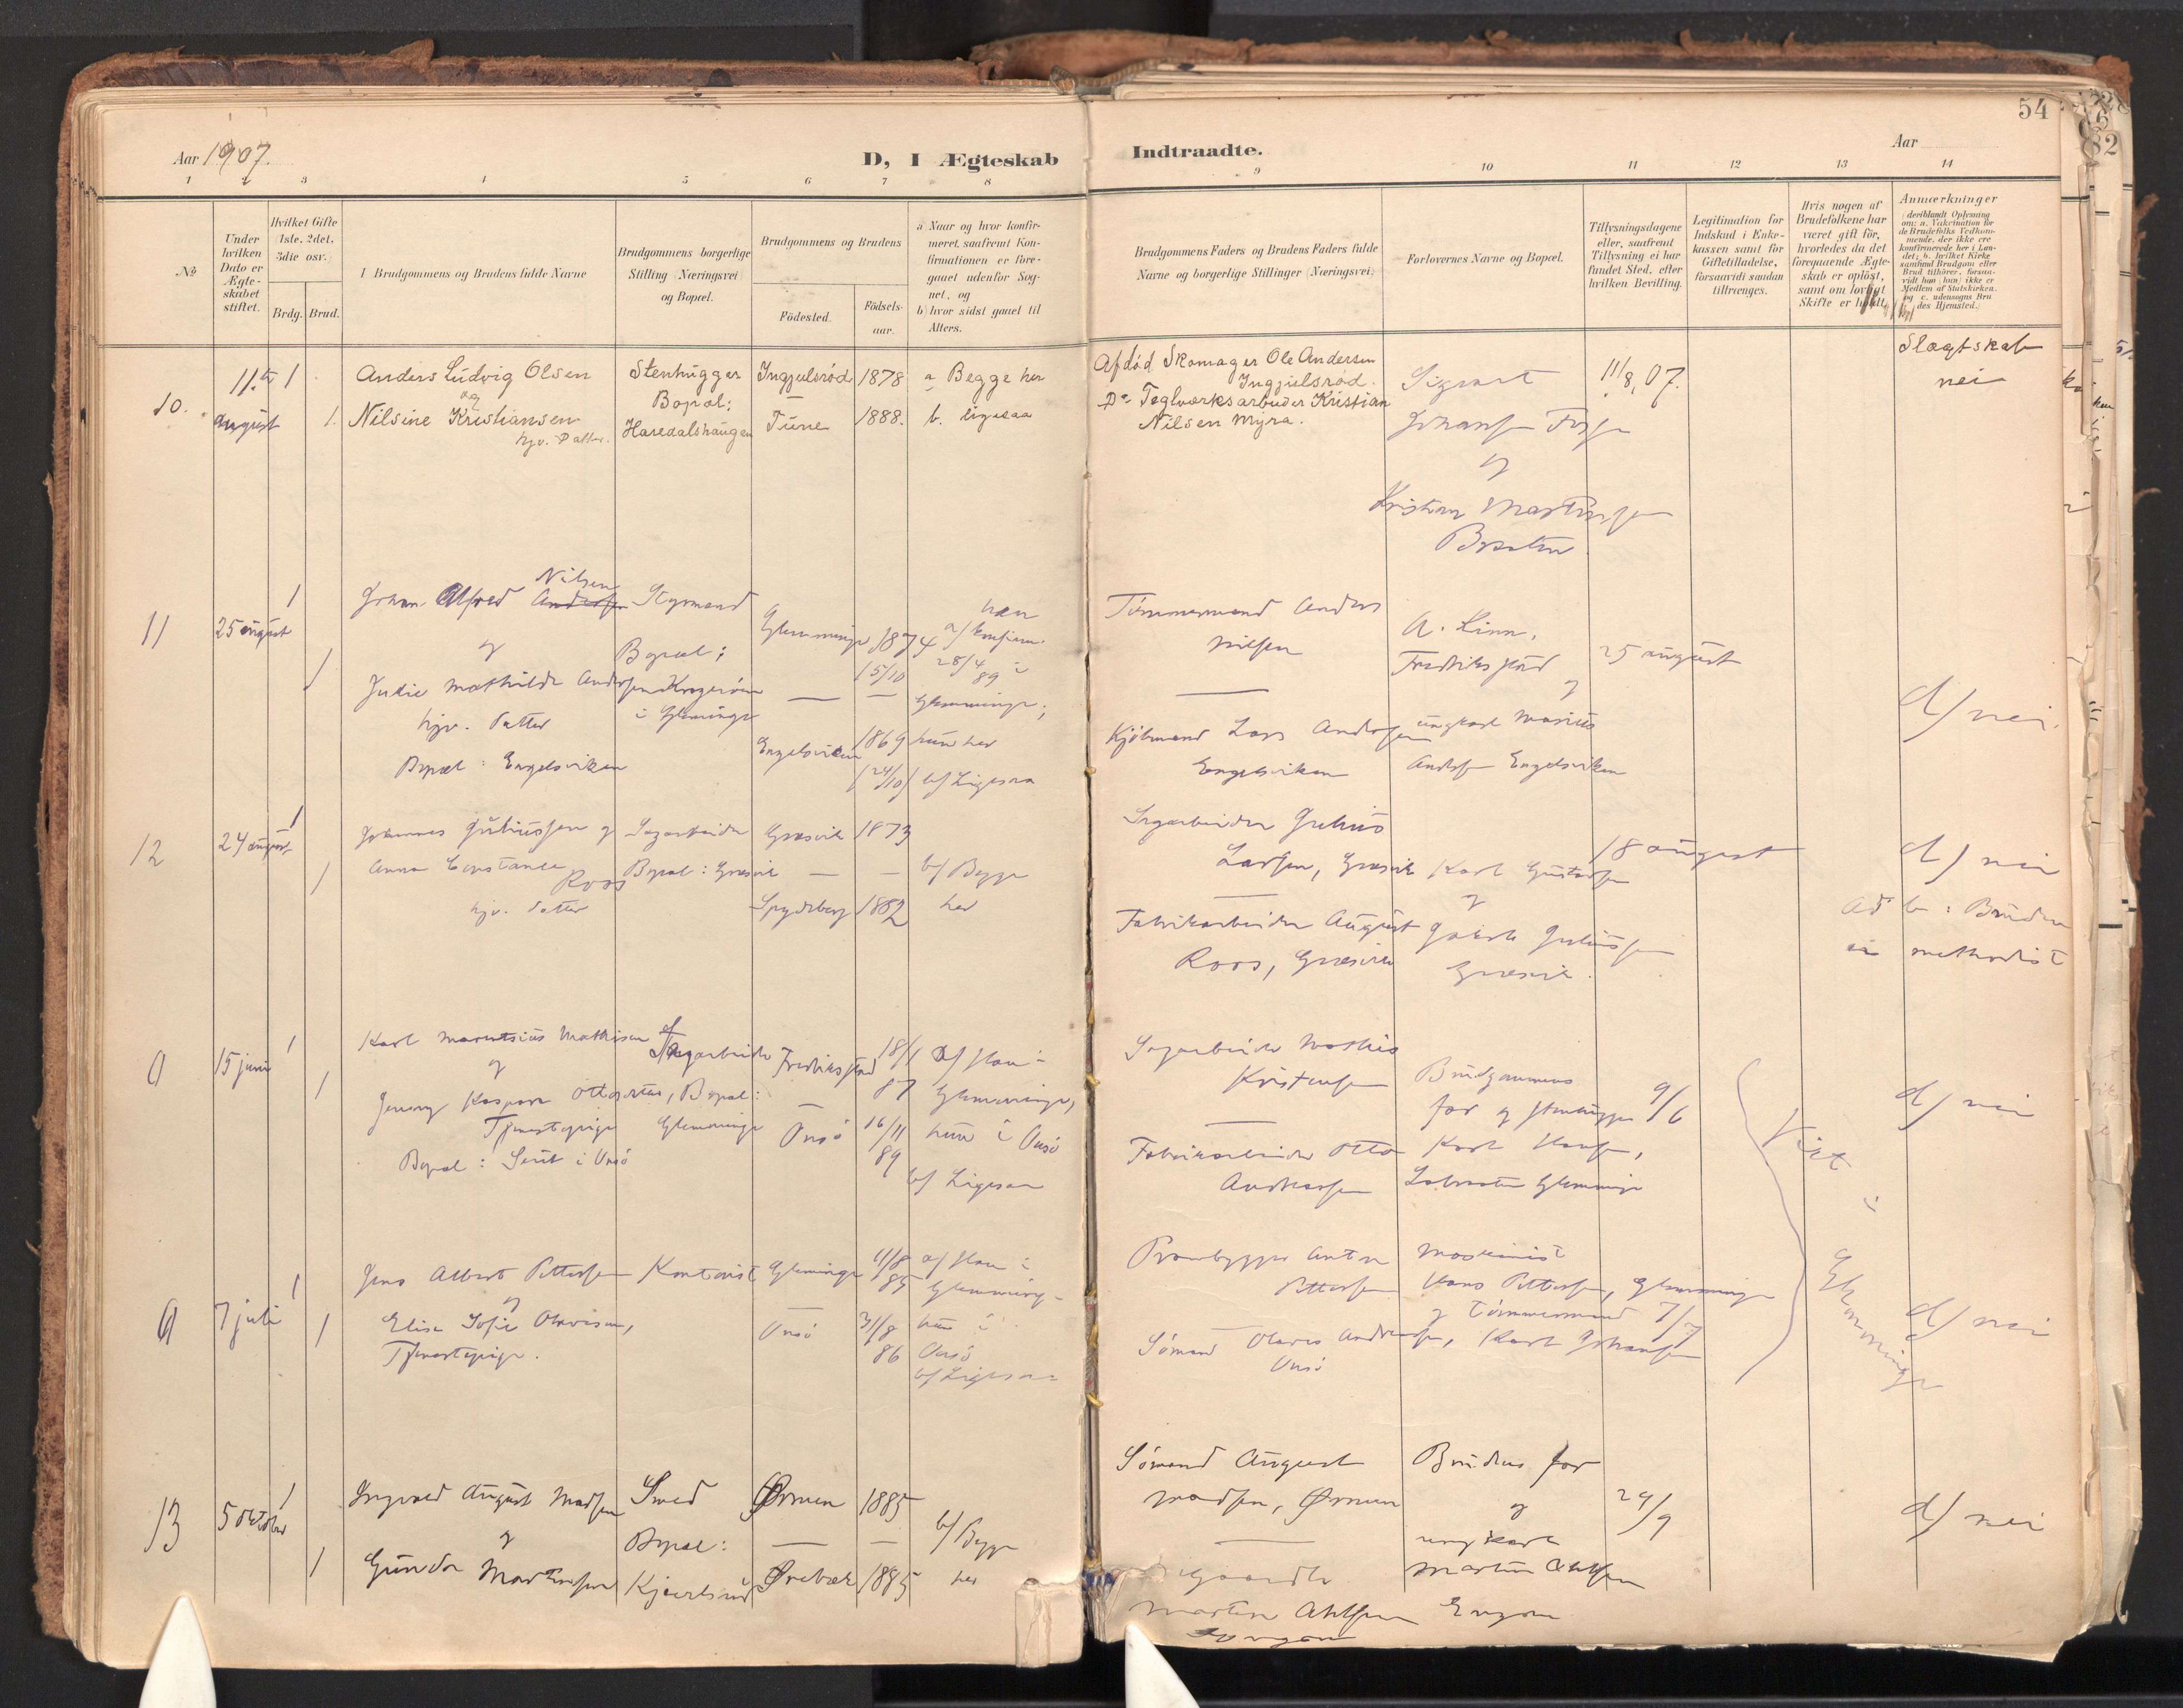 54
Aar 1907.
D, I Ægteskab Indtraadte.
Aar
1 2 3 4 5 6 7 8 9 10 11 12 13 14
No
Under hvilken Dato er Ægteskabet stiftet.
Hvilket Gifte (1ste, 2det, 3die osv.)
Brdg. Brud.
Brudgommens og Brudens fulde Navne
Brudgommens borgerlige Stilling (Næringsvei) og Bopæl.
Brudgommens og Brudens
Fødested.
Fødselsaar.
a) Naar og hvor konfirmeret, saafremt Konfirmationen er foregaaet udenfor Sognet, og
b) hvor sidst gaaet til Alters.
Brudgommens Faders og Brudens Faders fulde Navne og borgerlige Stillinger (Næringsvei)
Forlovernes Navne og Bopæl.
Tillysningsdagene eller, saafremt Tillysning ei har fundet Sted, efter hvilken Bevilling.
Legitimation for Indskud i Enkekassen samt for Giftetilladelse, forsaavidt saadan tiltrænges.
Hvis nogen af Brudefolkene har været gift før, hvorledes da det foregaaende Ægteskab er opløst, samt om lovligt Skifte er holdt.
Anmærkninger
(deriblandt Oplysning om: a. Vakcination for de Brudefolks Vedkommende, der ikke ere konfirmerede her i Landet; b. hvilket Kirkesamfund Brudgom eller Brud tilhører, forsaavidt han (hun) ikke er Medlem af Statskirken, og c. udensogns Brudes Hjemsted.)
10.
11.te august
1
1.
Anders Ludvig Olsen
og
Nilsine Kristiansen
hjv. Datter.
Stenhugger
Bopæl:
Haredalshaugen
Ingjulsrød
Tune
1878
1888.
a Begge her
b. ligesaa
Afdød Skomager Ole Andersen
Ingjulsrød.
Do Teglværksarbeider Kristian
Nilsen Myra.
Sigvart
Johansen
og
Kristian Martinsen
11/8 07.
Slægtskab
nei
11
25 august
1
1
Johan Alfred Nilsen
Andersen
og
Julie Mathilde Andersen
hjv. Datter
Bopæl: Engelsviken
Styrmand
Bopæl:
i Glemminge
Glemminge
Engelsviken
1874
15/10
1869
24/10
han
a/ konfirm.
28/4 89 i
Glemminge;
hun her
b/ Ligesaa
Tømmermand Anders
Nilsen
Kjøbmand Lars Andersen
Engelsviken
A. Linn,
Fredriksstad
og
ungkarl Marius
Andersen Engelsviken
25 august
d/ nei.
12
24 august
1
1
Johannes Juliussen og
Anna Constance
Roos
hjv. Datter
Sagarbeider
Bopæl: Græsvik
Græsvik
Spydeberg
1873
1882
b/ Begge
her
Sagarbeider Julius
Larsen, Græsvik
Fabrikarbeider August
Roos, Græsvik
Karl Gustavsen
og
Jakob Juliussen
Græsvik.
18 august
d/ nei
Ad b: Bruden
er methodist
a
15 juni
1
1
Karl Mauritsius Mathisen
og
Jenny Kaspara Ottosen,
Tjenestepige
Bopæl: Lerit i Onsø
Sagarbeider
Bopæl:
Glemminge
Fredriksstad
Onsø
18/1
87
16/11
89
a/ Han i
Glemminge,
hun i Onsø
b/ Ligesaa
Sagarbeider Mathis
Kristensen
Fabrikarbeider Otto
Andreassen
Brudgommens
far og stenhugger
Karl Hansen,
Glemminge
9/6
d/ nei
Viet i Glemminge
a
7 juli
1
1
Jens Albert Pettersen
og
Elise Sofie Olavisen,
Tjenestepige.
Kontorist
Glemminge
Onsø
4/8
85
31/8
86
a/ Han i
Glemminge
hun i
Onsø
b/ Ligesaa
Prambygger Anton
Pettersen
Sømand Olaves Andreassen,
Onsø
Maskinist
Hans Pettersen, Glemminge
og Tømmermand
Karl Johansen
7/7
d/ nei
13
5 oktober
1
1
Ingvald August Madsen
og
Gunda Martinsen
Smed
Bopæl:
Ørmen
Ørebæk
1885
1885
b/ Begge
her
Sømand August
Madsen, Ørmen
Martin Ahlsen
Brudens far
og
ungkarl
Martin Ahlsen
29/9
d/ nei